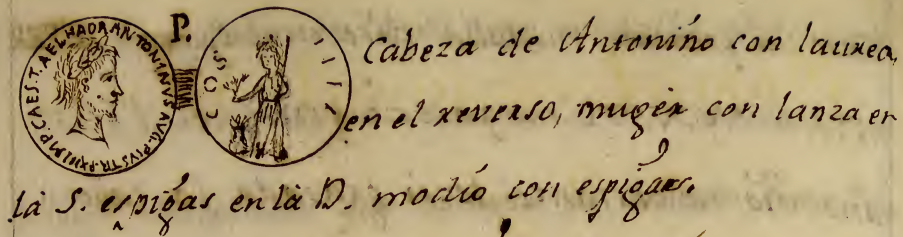 IMP. CAES. T. AEL HADR ANTONINUS AUG. PIUS TR. P. XIII
P.
COS IIII
Cabeza de Antonino con laurea,
en el reverso, muger con lanza en
la S. espigas en la D. modio con espigas.